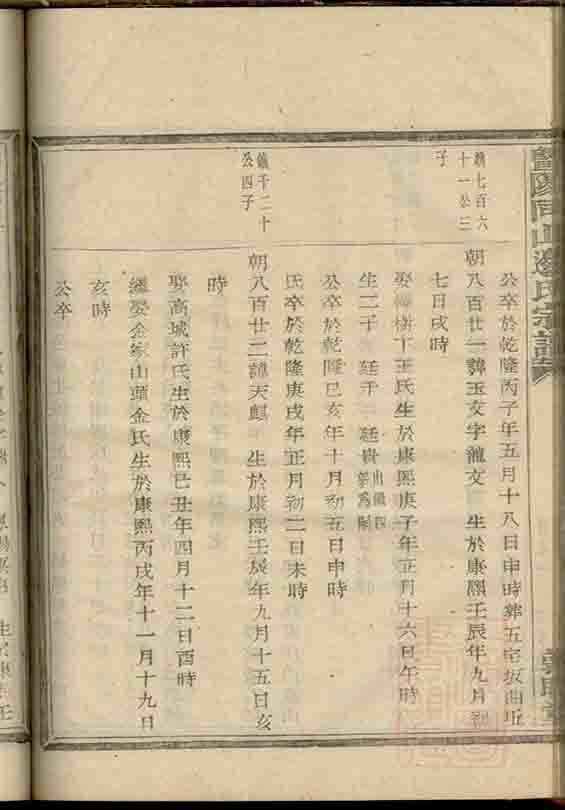 暨陽同山邊氏宗譜
公卒於乾隆丙子年五月十八日申時葬五宅坂曲丘
鎮七百六
十一公三
子
朝八百廿一諱玉文字龍文 生於康熙壬辰年九月初
七日戌時
娶 樹下王氏生於康熙庚子年正月十六日午時
生二子 廷千 廷貴
公卒於乾隆己亥年十月初五日申時
氏卒於乾隆庚戌年正月初二日未時
鎮千二十
公四子
朝八百廿二諱天麒 生於康熙壬辰年九月十五日亥
時
娶高城許氏生於康熙己丑年四月十二日酉時
繼娶金家山頭金氏生於康熙丙戌年十一月十九日
亥時
公卒